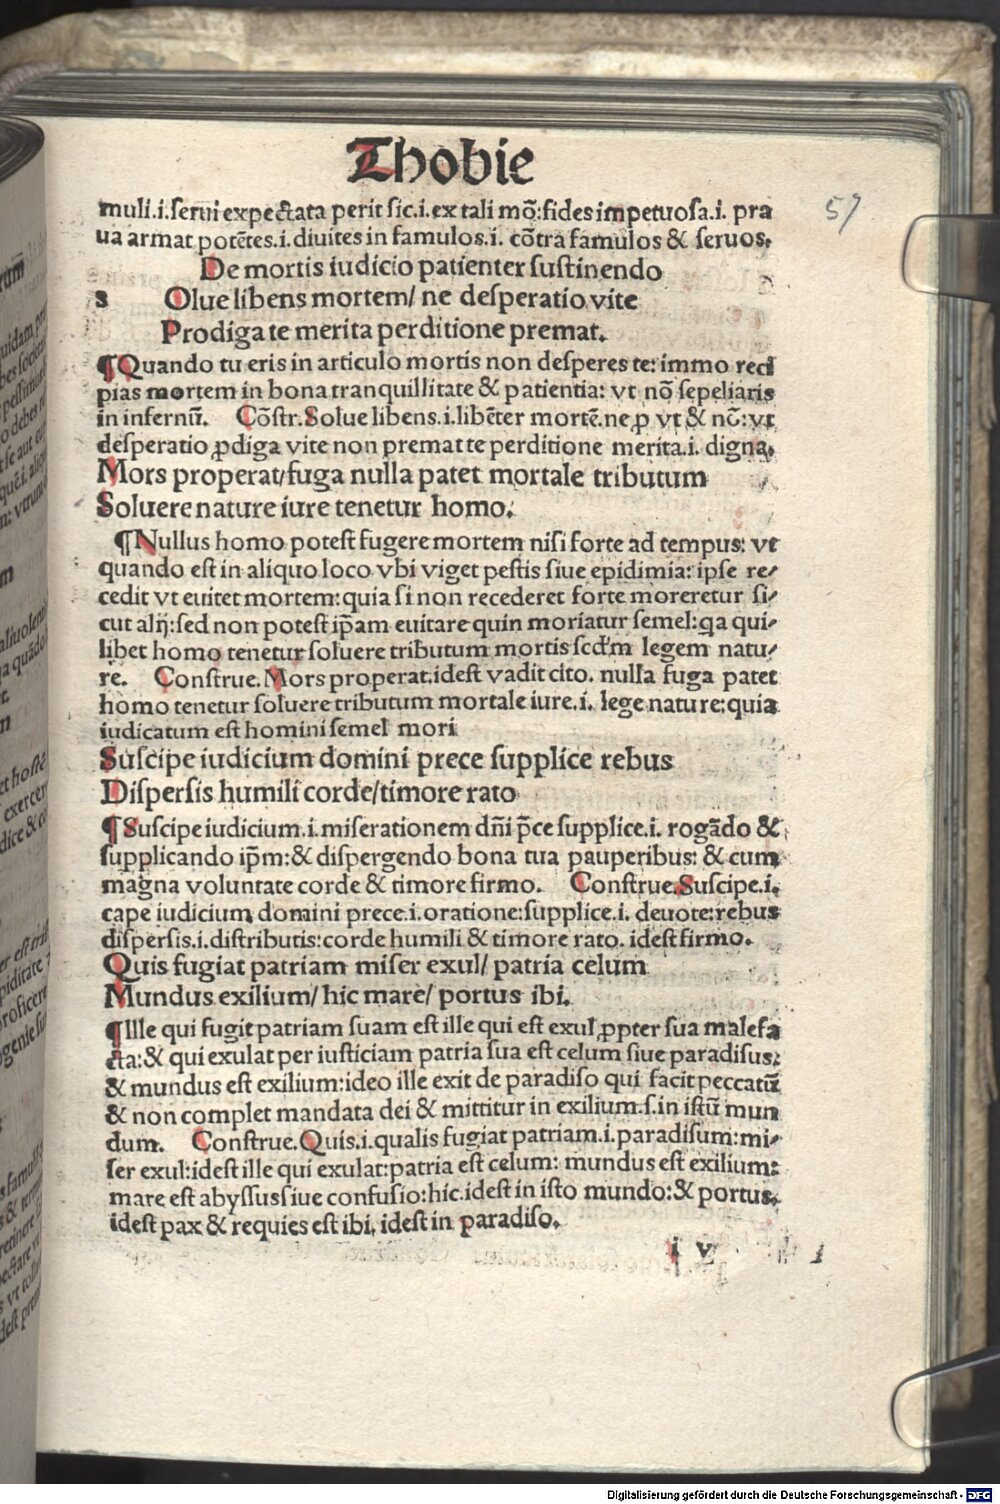 Thobie
57
muli.i.serui expectata perit sic.i.ex tali mō:fides impetuosa.i. pra
ua armat potētes.i.diuites in famulos.i. cōtra famulos & seruos.
De mortis iudicio patienter sustinendo
s Olue libens mortem/ ne desperatio vite
Prodiga te merita perditione premat.
¶Quando tu eris in articulo mortis non desperes te: immo reci
pias mortem in bona tranquillitate & patientia: vt nō sepeliaris
in infernū. Cōstr.Solue libens.i.libēter mortē.ne ꝓ vt & nō:vt
desperatio ꝓdiga vite non premat te perditione merita.i. digna.
Mors properat/fuga nulla patet mortale tributum
Soluere nature iure tenetur homo.
¶Nullus homo potest fugere mortem nisi forte ad tempus: vt
quando est in aliquo loco vbi viget pestis siue epidimia: ipse re/
cedit vt euitet mortem:quia si non recederet forte moreretur si/
cut alij:sed non potest ip̄am euitare quin moriatur semel:qa qui/
libet homo tenetur soluere tributum mortis scd̄m legem natu/
re. Construe.Mors properat.idest vadit cito. nulla fuga patet
homo tenetur soluere tributum mortale iure.i. lege nature:quia
iudicatum est homini semel mori
Suscipe iudicium domini prece supplice rebus
Dispersis humili corde/timore rato
¶Suscipe iudicium.i.miserationem dn̄i p̄ce supplice.i. rogādo &
supplicando ip̄m:& dispergendo bona tua pauperibus: & cum
magna voluntate corde & timore firmo. Construe.Suscipe.i.
cape iudicium domini prece.i.oratione:supplice.i. deuote:rebus
dispersis.i.distributis:corde humili & timore rato. idest firmo.
Quis fugiat patriam miser exul/ patria celum
Mundus exilium/ hic mare/ portus ibi.
¶Ille qui fugit patriam suam est ille qui est exul ꝓpter sua malefa
cta:& qui exulat per iusticiam patria sua est celum siue paradisus:
& mundus est exilium:ideo ille exit de paradiso qui facit peccatū
& non complet mandata dei & mittitur in exilium.s.in istū mun
dum. Construe.Quis.i.qualis fugiat patriam.i.paradisum:mi/
ser exul:idest ille qui exulat:patria est celum: mundus est exilium:
mare est abyssus siue confusio:hic.idest in isto mundo:& portus.
idest pax & requies est ibi.idest in paradiso.
i v
Digitalisierung gefördert durch die Deutsche Forschungsgemeinschaft - DFG